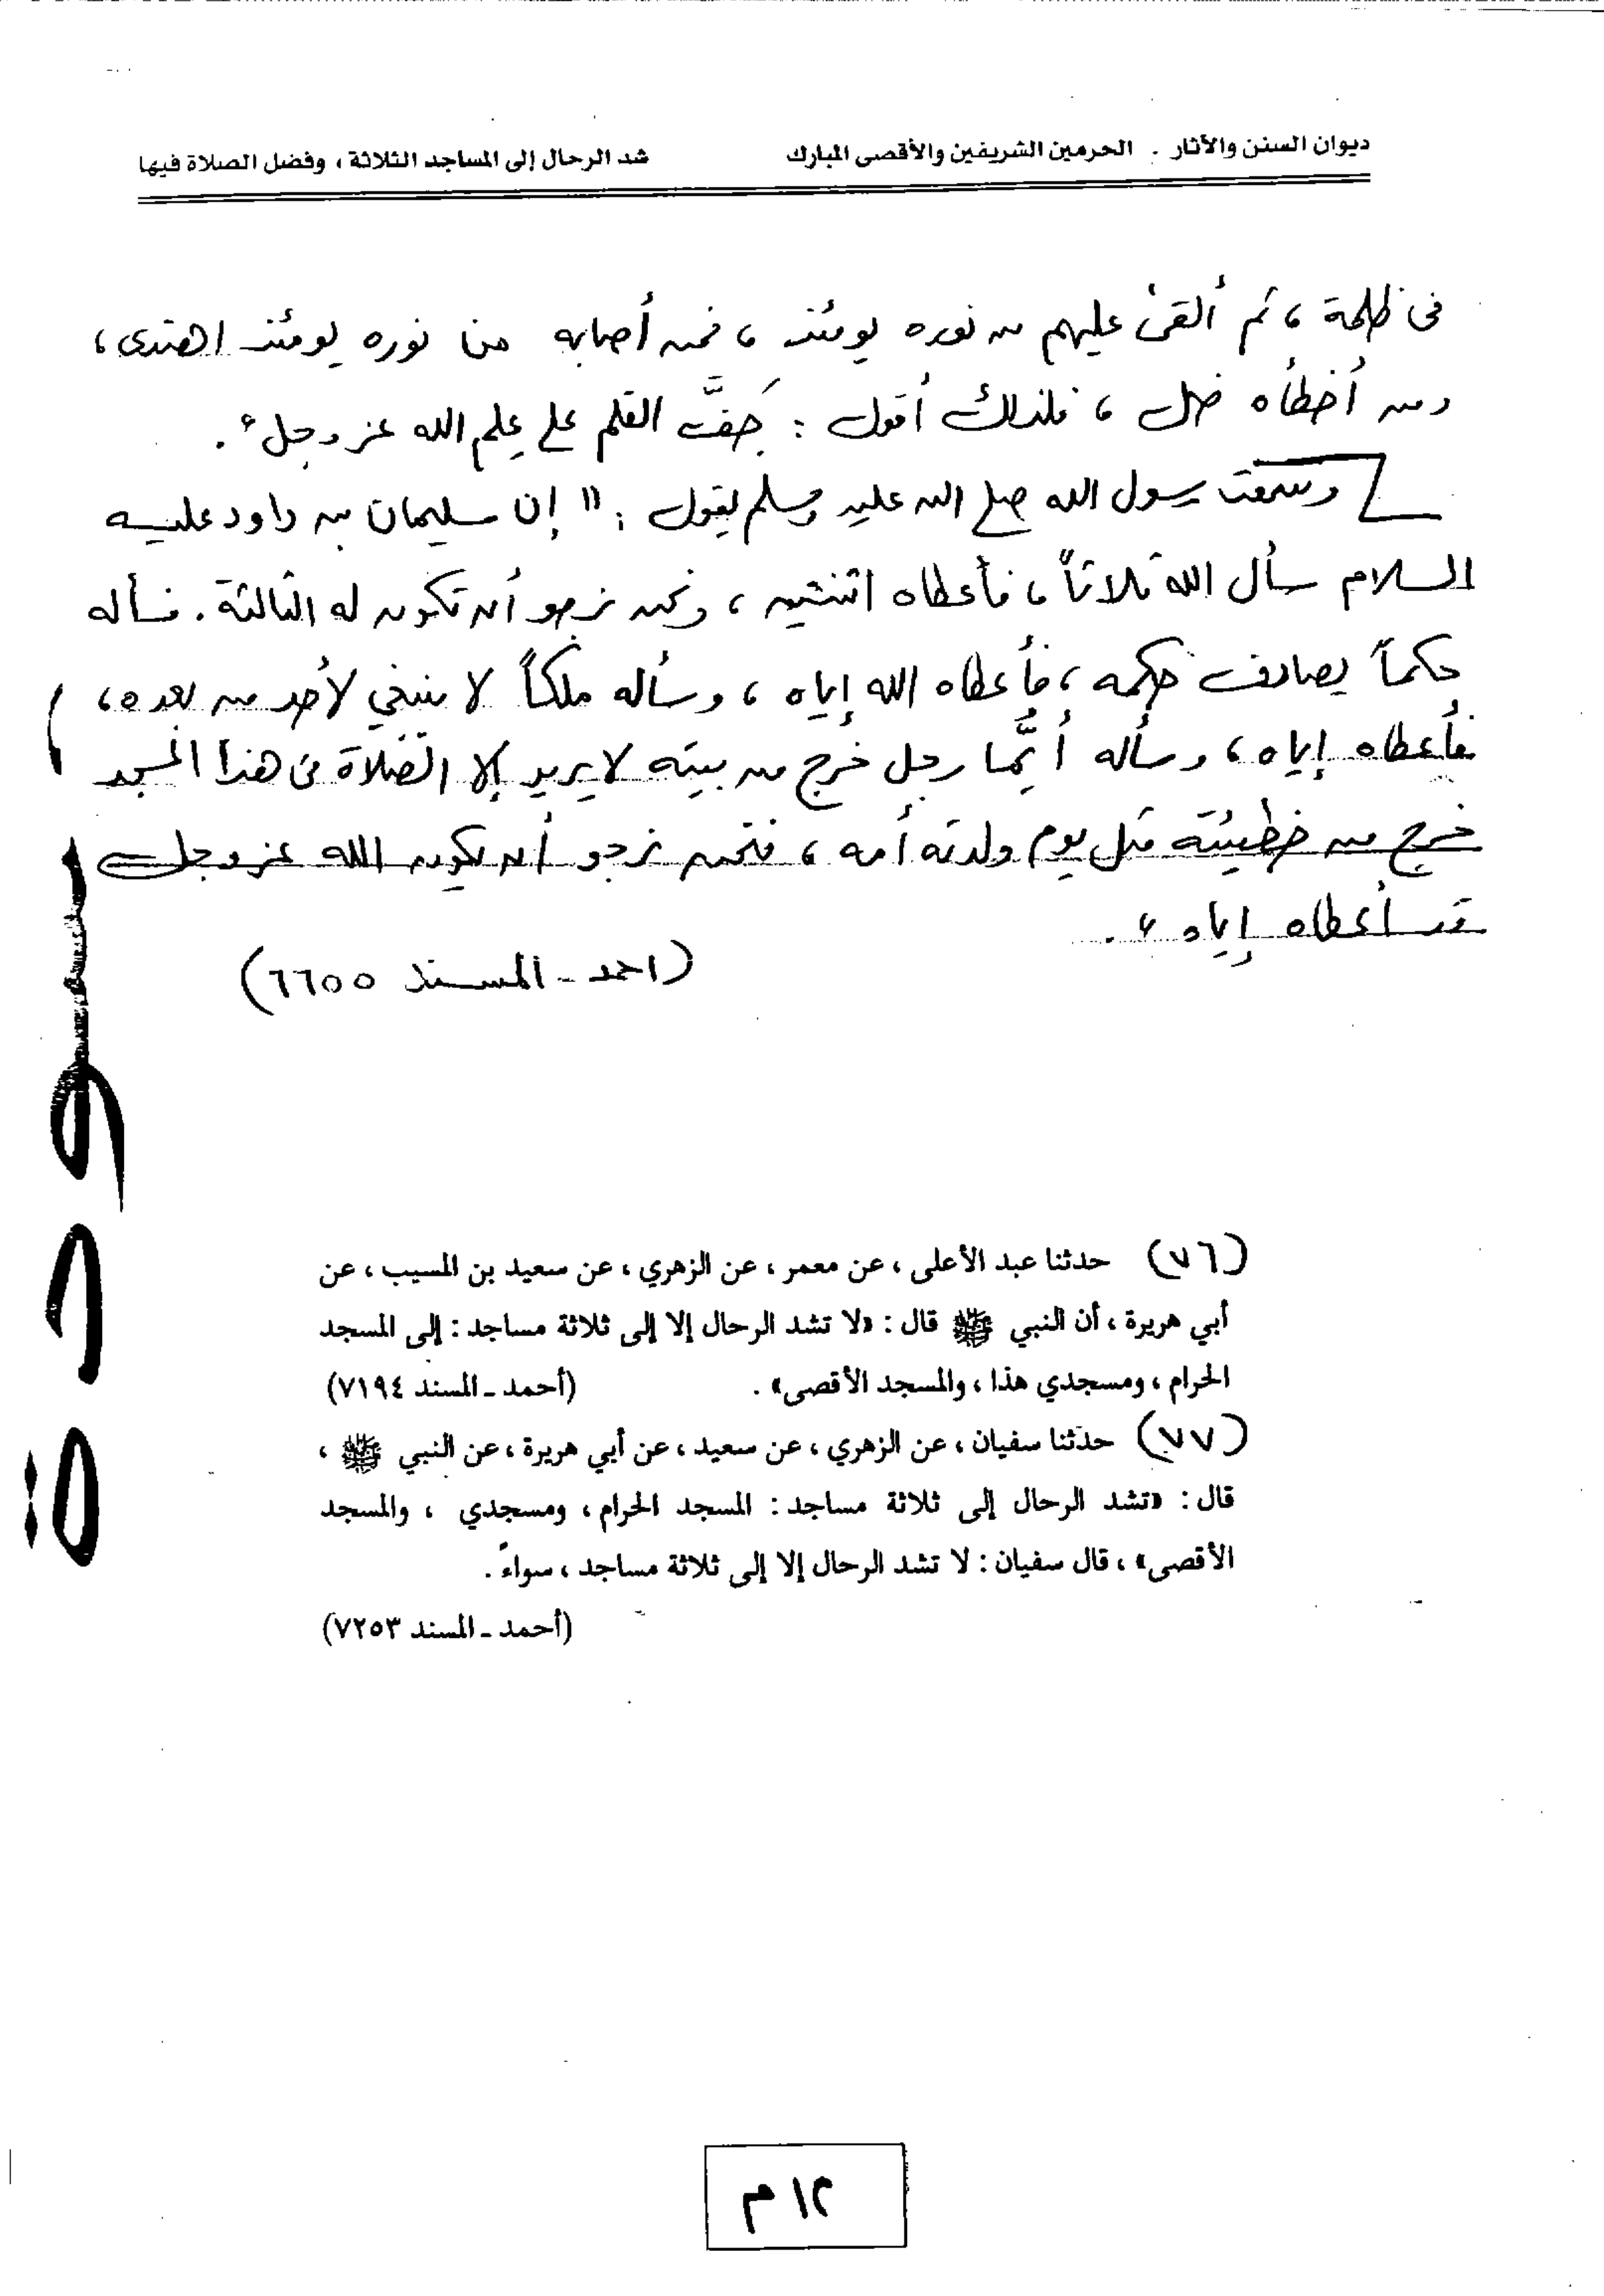 ديوان السنن والآثار . الحرمين الشريفين والأقصى المبارك
شد الرحال إلى المساجد الثلاثة ، وفضل الصلاة فيها
فى ظلمة ، ثم ألقى عليهم من نوره يومئذ ، فمن أصابه من نوره يومئذ اهتدى ،
ومن أخطأه ضل ، فلذلك أقول : جَفَّ القلم على عِلم الله عز وجل" .
وسمعت رسول الله صلى الله عليه وسلم يقول : " إن سليمان بن داود عليه
السلام سأل الله ثلاثاً ، فأعطاه اثنتين ، ونحن نرجو أن تكون له الثالثة . فسأله
حكماً يصادف حكمه ، فأعطاه الله إياه ، وسأله ملكاً لا ينبغي لأحد من بعده ،
فأعطاه إياه ، وسأله أيَّما رجل خرج من بيته لا يريد إلا الصَّلاة فى هذا المسجد
خرج من خطيئته مثل يوم ولدته أمه ، فنحن نرجو أن يكون الله عز وجل
قد أعطاه إياه " .
(احمد - المسند ٦٦٥٥)
مسودة
(٧٦) حدثنا عبد الأعلى ، عن معمر ، عن الزهري ، عن سعيد بن المسيب ، عن
أبي هريرة ، أن النبي ﷺ قال : «لا تشد الرحال إلا إلى ثلاثة مساجد : إلى المسجد
الحرام ، ومسجدي هذا ، والمسجد الأقصى» . (أحمد - المسند ٧١٩٤)
(٧٧) حدثنا سفيان ، عن الزهري ، عن سعيد ، عن أبي هريرة ، عن النبي ﷺ ،
قال : «تشد الرحال إلى ثلاثة مساجد : المسجد الحرام ، ومسجدي ، والمسجد
الأقصى» ، قال سفيان : لا تشد الرحال إلا إلى ثلاثة مساجد ، سواءً .
(أحمد - المسند ٧٢٥٣)
١٢ م